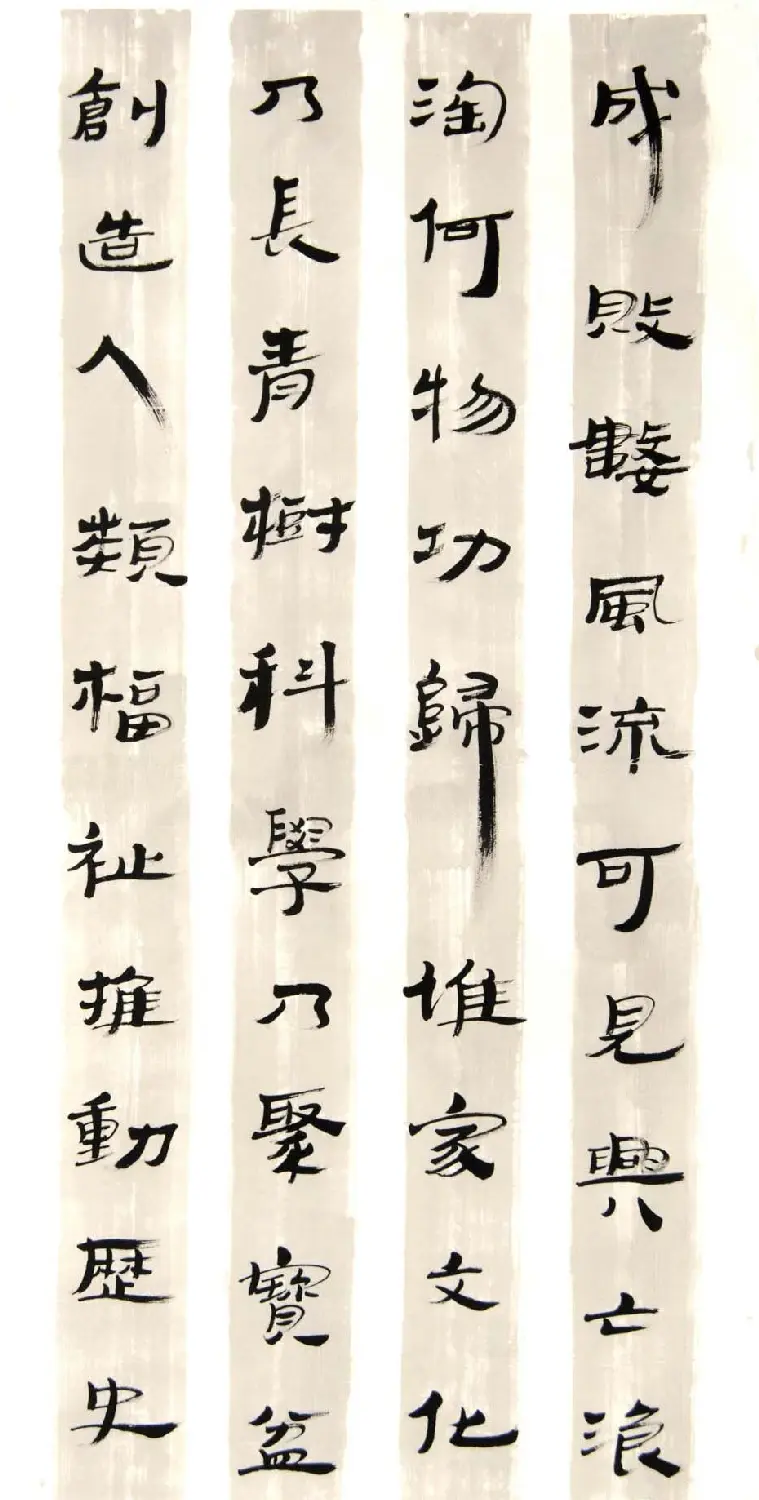 成敗數風流可見興亡浪
淘何物功歸堆家文化
乃長青樹科學乃聚寶盆
創造人類福祉推動歷史